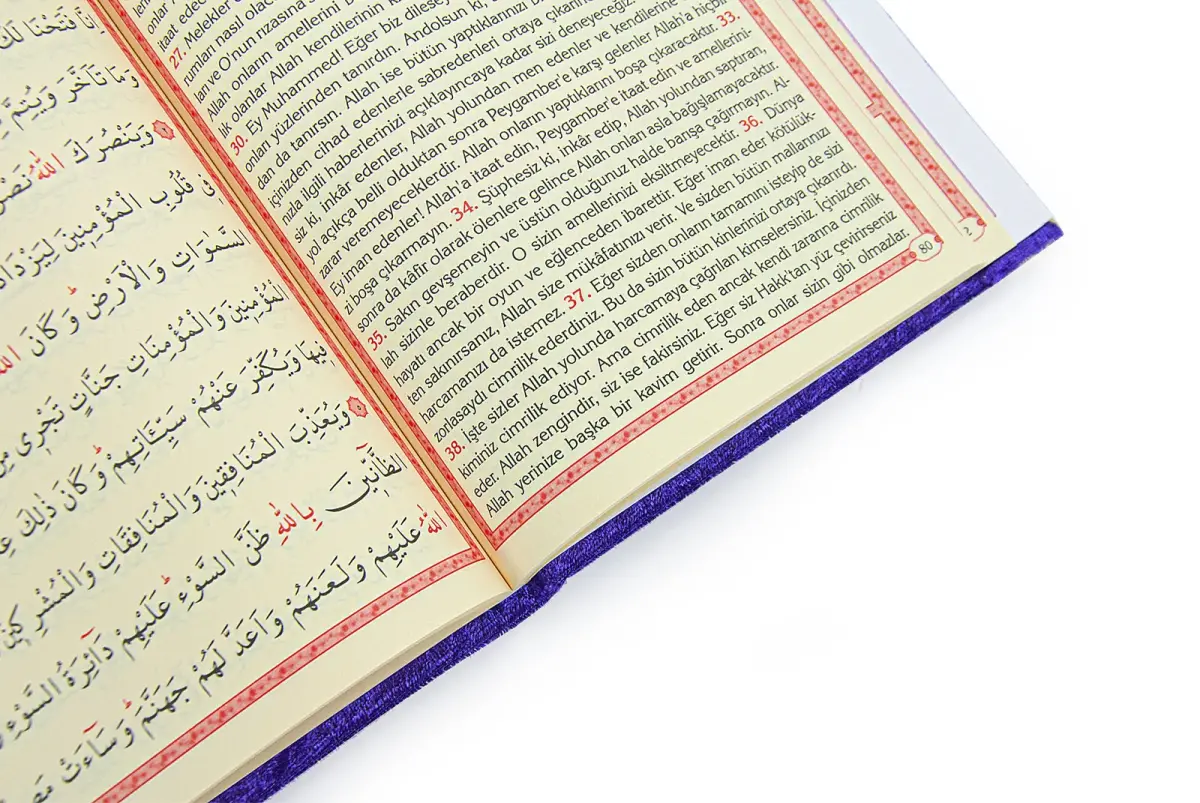 itaat edec
27. Melekler
rumları nasıl olac
ları ve O'nun rızasına
Allah, onların amellerini
lık olanlar Allah kendilerinin
30. Ey Muhammed! Eğer biz dilesey
onları yüzlerinden tanırdın. Andolsun ki,
dan da tanırsın. Allah ise bütün yaptıklarınızı
içinizden cihad edenlerle sabredenleri ortaya çıkarın
nızla ilgili haberlerinizi açıklayıncaya kadar sizi deneyeceğiz.
siz ki, inkâr edenler, Allah yolundan men edenler ve kendilerine
yol açıkça belli olduktan sonra Peygamber'e karşı gelenler Allah'a hiçbir
zarar veremeyeceklerdir. Allah onların yaptıklarını boşa çıkaracaktır. 33.
Ey iman edenler! Allah'a itaat edin, Peygamber'e itaat edin ve amellerini-
zi boşa çıkarmayın. 34. Şüphesiz ki, inkâr edip, Allah yolundan saptıran,
sonra da kâfir olarak ölenlere gelince Allah onları asla bağışlamayacaktır.
35. Sakın gevşemeyin ve üstün olduğunuz halde barışa çağırmayın. Al-
lah sizinle beraberdir. O sizin amellerinizi eksiltmeyecektir. 36. Dünya
hayatı ancak bir oyun ve eğlenceden ibarettir. Eğer iman eder kötülük-
ten sakınırsanız, Allah size mükâfatınızı verir. Ve sizden bütün mallarınızı
harcamanızı da istemez. 37. Eğer sizden onların tamamını isteyip de sizi
zorlasaydı cimrilik ederdiniz. Bu da sizin bütün kinlerinizi ortaya çıkarırdı.
38. İşte sizler Allah yolunda harcamaya çağrılan kimselersiniz. İçinizden
kiminiz cimrilik ediyor. Ama cimrilik eden ancak kendi zararına cimrilik
eder. Allah zengindir, siz ise fakirsiniz. Eğer siz Hakk'tan yüz çevirirseniz
Allah yerinize başka bir kavim getirir. Sonra onlar sizin gibi olmazlar.
80
2
اِنَّا فَتَحْنَا لَكَ
وَمَا تَاَخَّرَ وَيُتِمَّ
وَيَنْصُرَكَ اللّٰهُ نَصْرًا
فٖى قُلُوبِ الْمُؤْمِنٖينَ لِيَزْدَادُ
السَّمٰوَاتِ وَالْاَرْضِ وَكَانَ اللّٰ
الْمُؤْمِنٖينَ وَالْمُؤْمِنَاتِ جَنَّاتٍ تَجْرٖى مِنْ
فٖيهَا وَيُكَفِّرَ عَنْهُمْ سَيِّـَٔاتِهِمْ وَكَانَ ذٰلِكَ عِ
٥ وَيُعَذِّبَ الْمُنَافِقٖينَ وَالْمُنَافِقَاتِ وَالْمُشْرِكٖينَ
الظَّٓانّٖينَ بِاللّٰهِ ظَنَّ السَّوْءِ عَلَيْهِمْ دَٓائِرَةُ السَّوْءِ
اللّٰهُ عَلَيْهِمْ وَلَعَنَهُمْ وَاَعَدَّ لَهُمْ جَهَنَّمَ وَسَٓاءَتْ مَصٖ